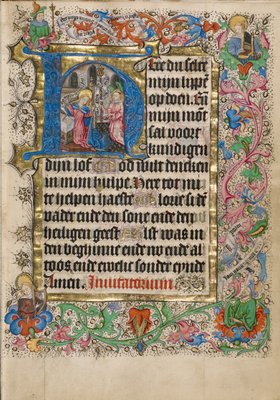 Here du selt
mijn lippẽ
op doen. En
mijn mont
sal voort
kundigen
dijn lof God wilt dencken
in mijn hulpe. Here tot mi
te helpen haeste Glorie si dē
vader ende den sone ende den
heiligen geest Als't was in
den beghinne ende nu ende al
toos ende ewelic sonder eynde
Amen. Inuitatorium